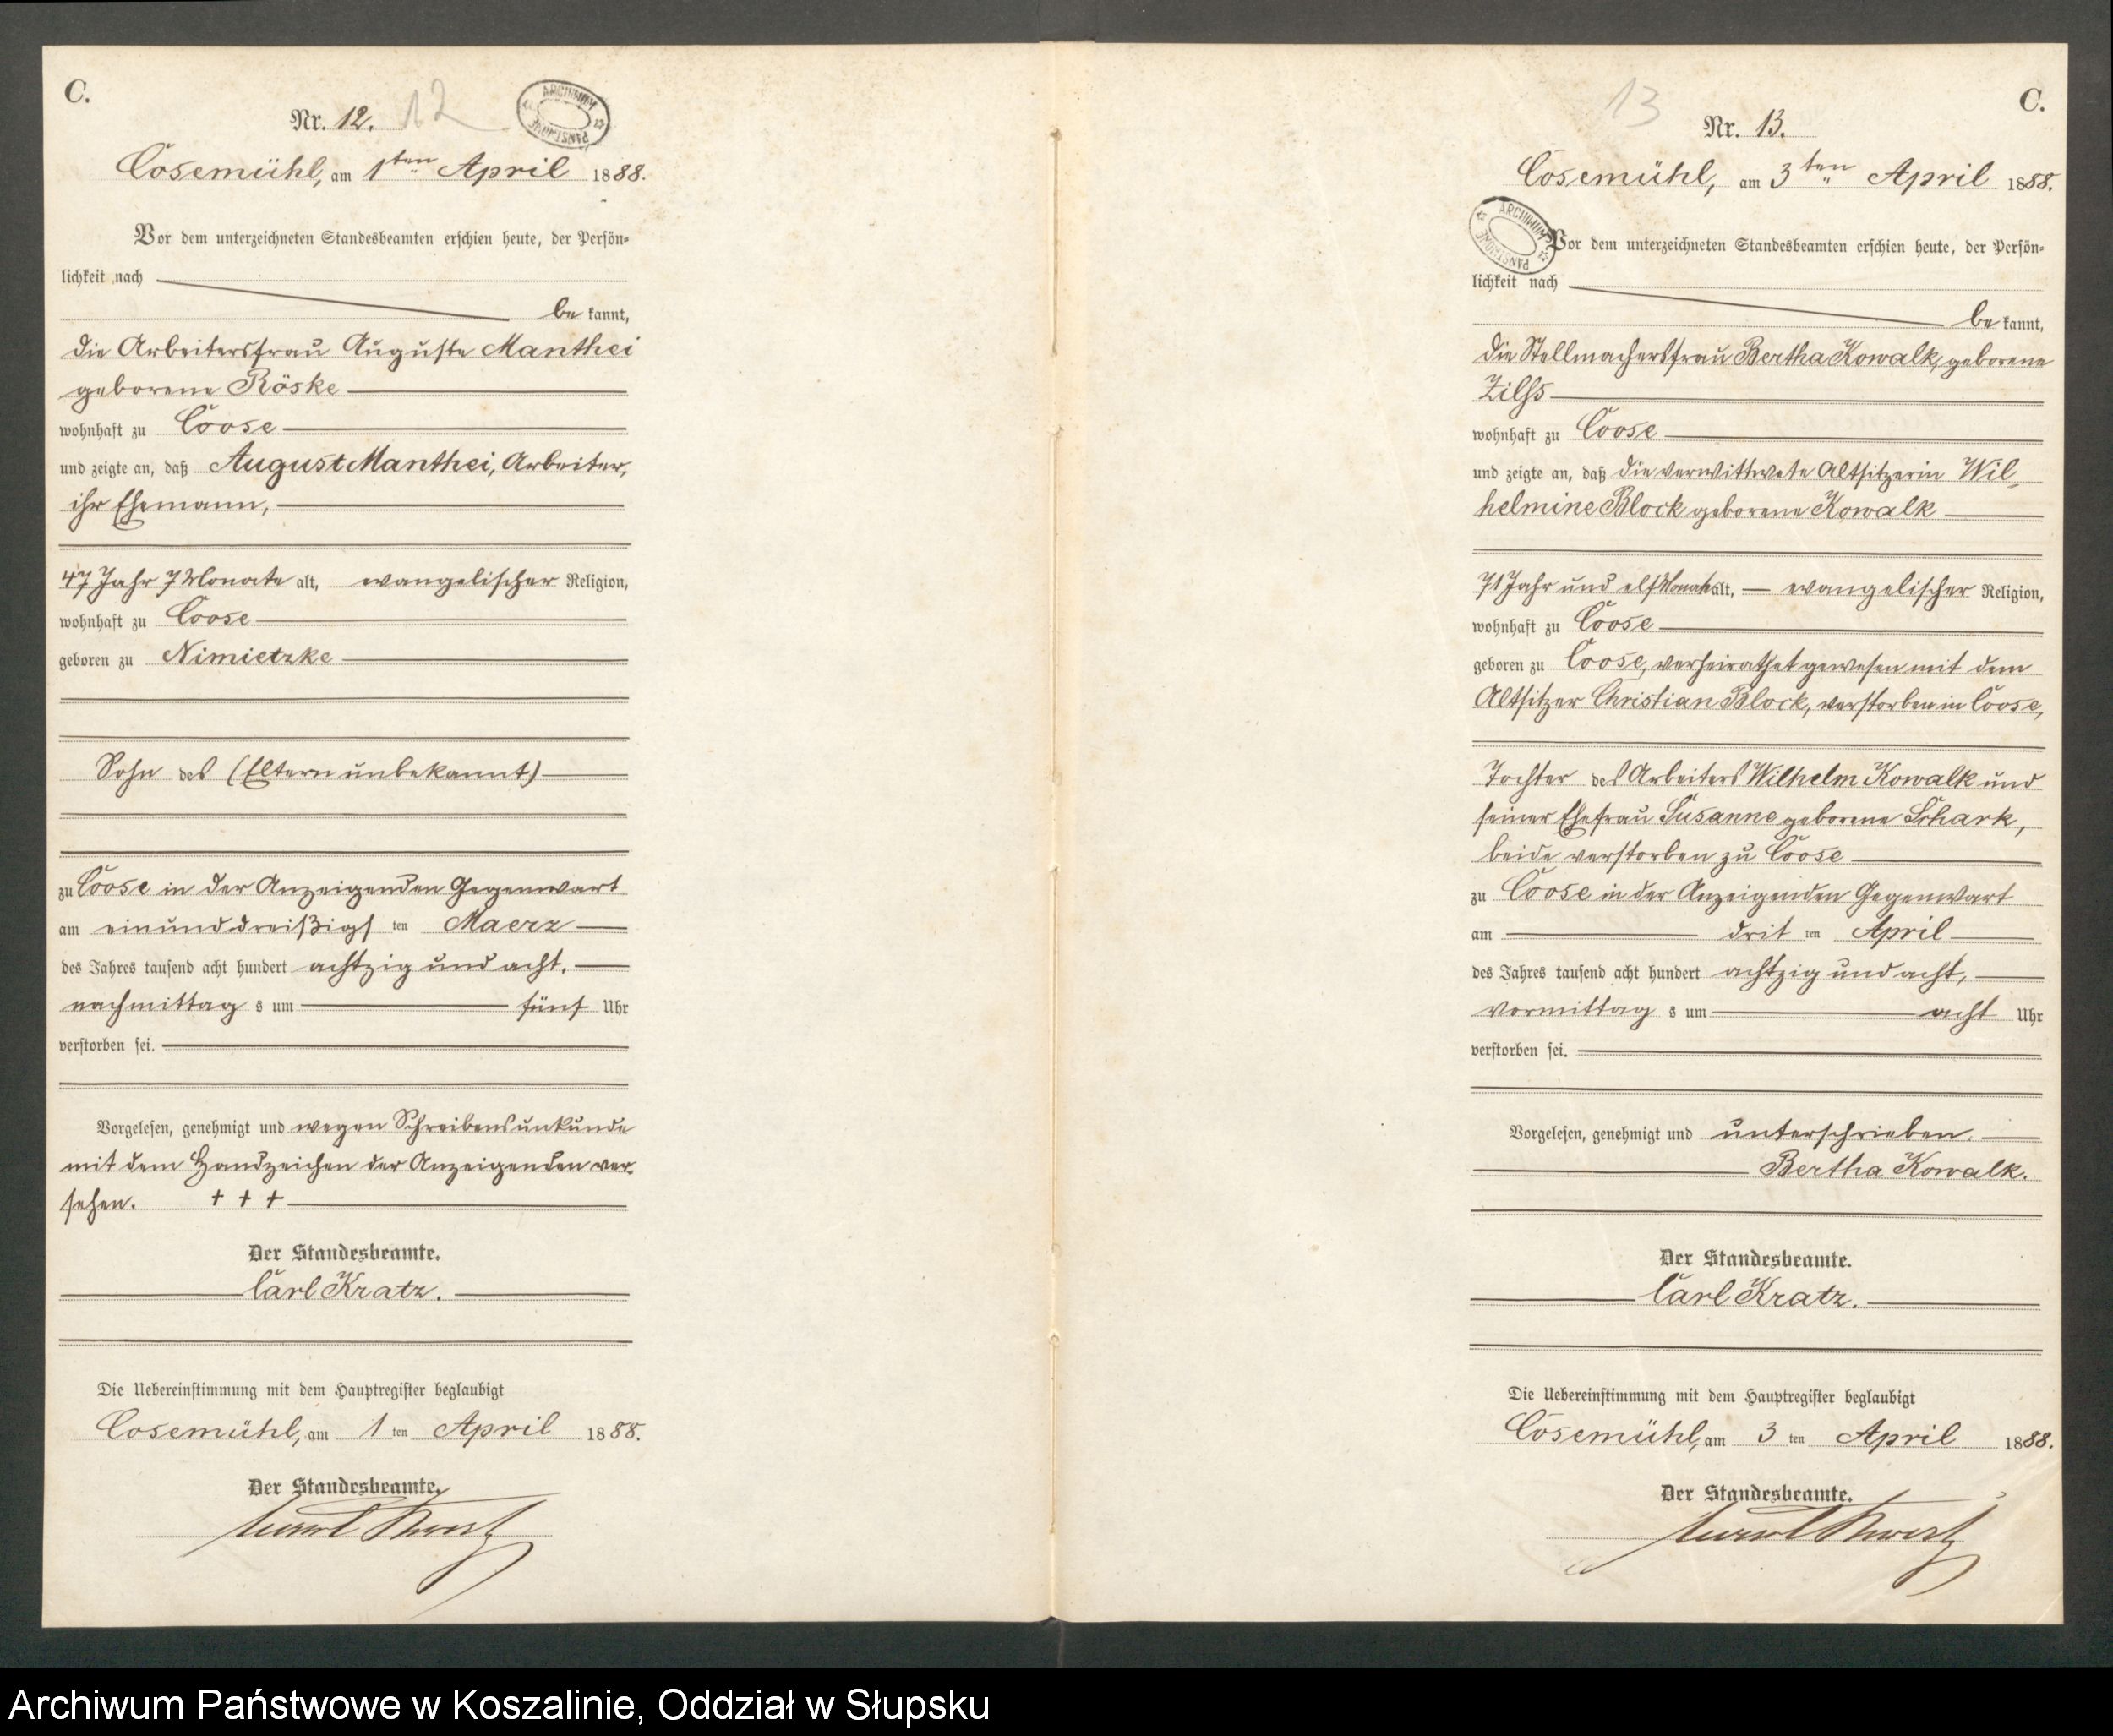 C.
Nr. 12. 12
ARCHIWUM PAŃSTWOWE
Cosemühl, am 1ten April 1888.
Vor dem unterzeichneten Standesbeamten erschien heute, der Persön-
lichkeit nach
be kannt,
die Arbeitersfrau Auguste Manthei
geborene Röske
wohnhaft zu Coose
und zeigte an, daß August Manthei, Arbeiter,
ihr Ehemann,
47 Jahr 7 Monate alt, evangelischer Religion,
wohnhaft zu Coose
geboren zu Nimietzke
Sohn des (Eltern unbekannt)
zu Coose in der Anzeigenden Gegenwart
am einunddreißigs ten Maerz
des Jahres tausend acht hundert achtzig und acht,
nachmittag s um fünf Uhr
verstorben sei.
Vorgelesen, genehmigt und wegen Schreibensunkunde
mit dem Handzeichen der Anzeigenden ver-
sehen. + + +
Der Standesbeamte.
Carl Kratz.
Die Uebereinstimmung mit dem Hauptregister beglaubigt
Cosemühl, am 1 ten April 1888.
Der Standesbeamte.
Carl Kratz
C.
13
Nr. 13.
Cosemühl, am 3ten April 1888.
ARCHIWUM PAŃSTWOWE
Vor dem unterzeichneten Standesbeamten erschien heute, der Persön-
lichkeit nach
be kannt,
die Stellmachersfrau Bertha Kowalk, geborene
Zilss
wohnhaft zu Coose
und zeigte an, daß die verwittwete Altsitzerin Wil-
helmine Block geborene Kowalk
71 Jahr und elf Monate alt, evangelischer Religion,
wohnhaft zu Coose
geboren zu Coose, verheirathet gewesen mit dem
Altsitzer Christian Block, verstorben in Coose,
Tochter des Arbeiters Wilhelm Kowalk und
seiner Ehefrau Susanne geborene Schark,
beide verstorben zu Coose
zu Coose in der Anzeigenden Gegenwart
am drit ten April
des Jahres tausend acht hundert achtzig und acht,
vormittag s um acht Uhr
verstorben sei.
Vorgelesen, genehmigt und unterschrieben.
Bertha Kowalk.
Der Standesbeamte.
Carl Kratz.
Die Uebereinstimmung mit dem Hauptregister beglaubigt
Cosemühl, am 3 ten April 1888.
Der Standesbeamte.
Carl Kratz
Archiwum Państwowe w Koszalinie, Oddział w Słupsku